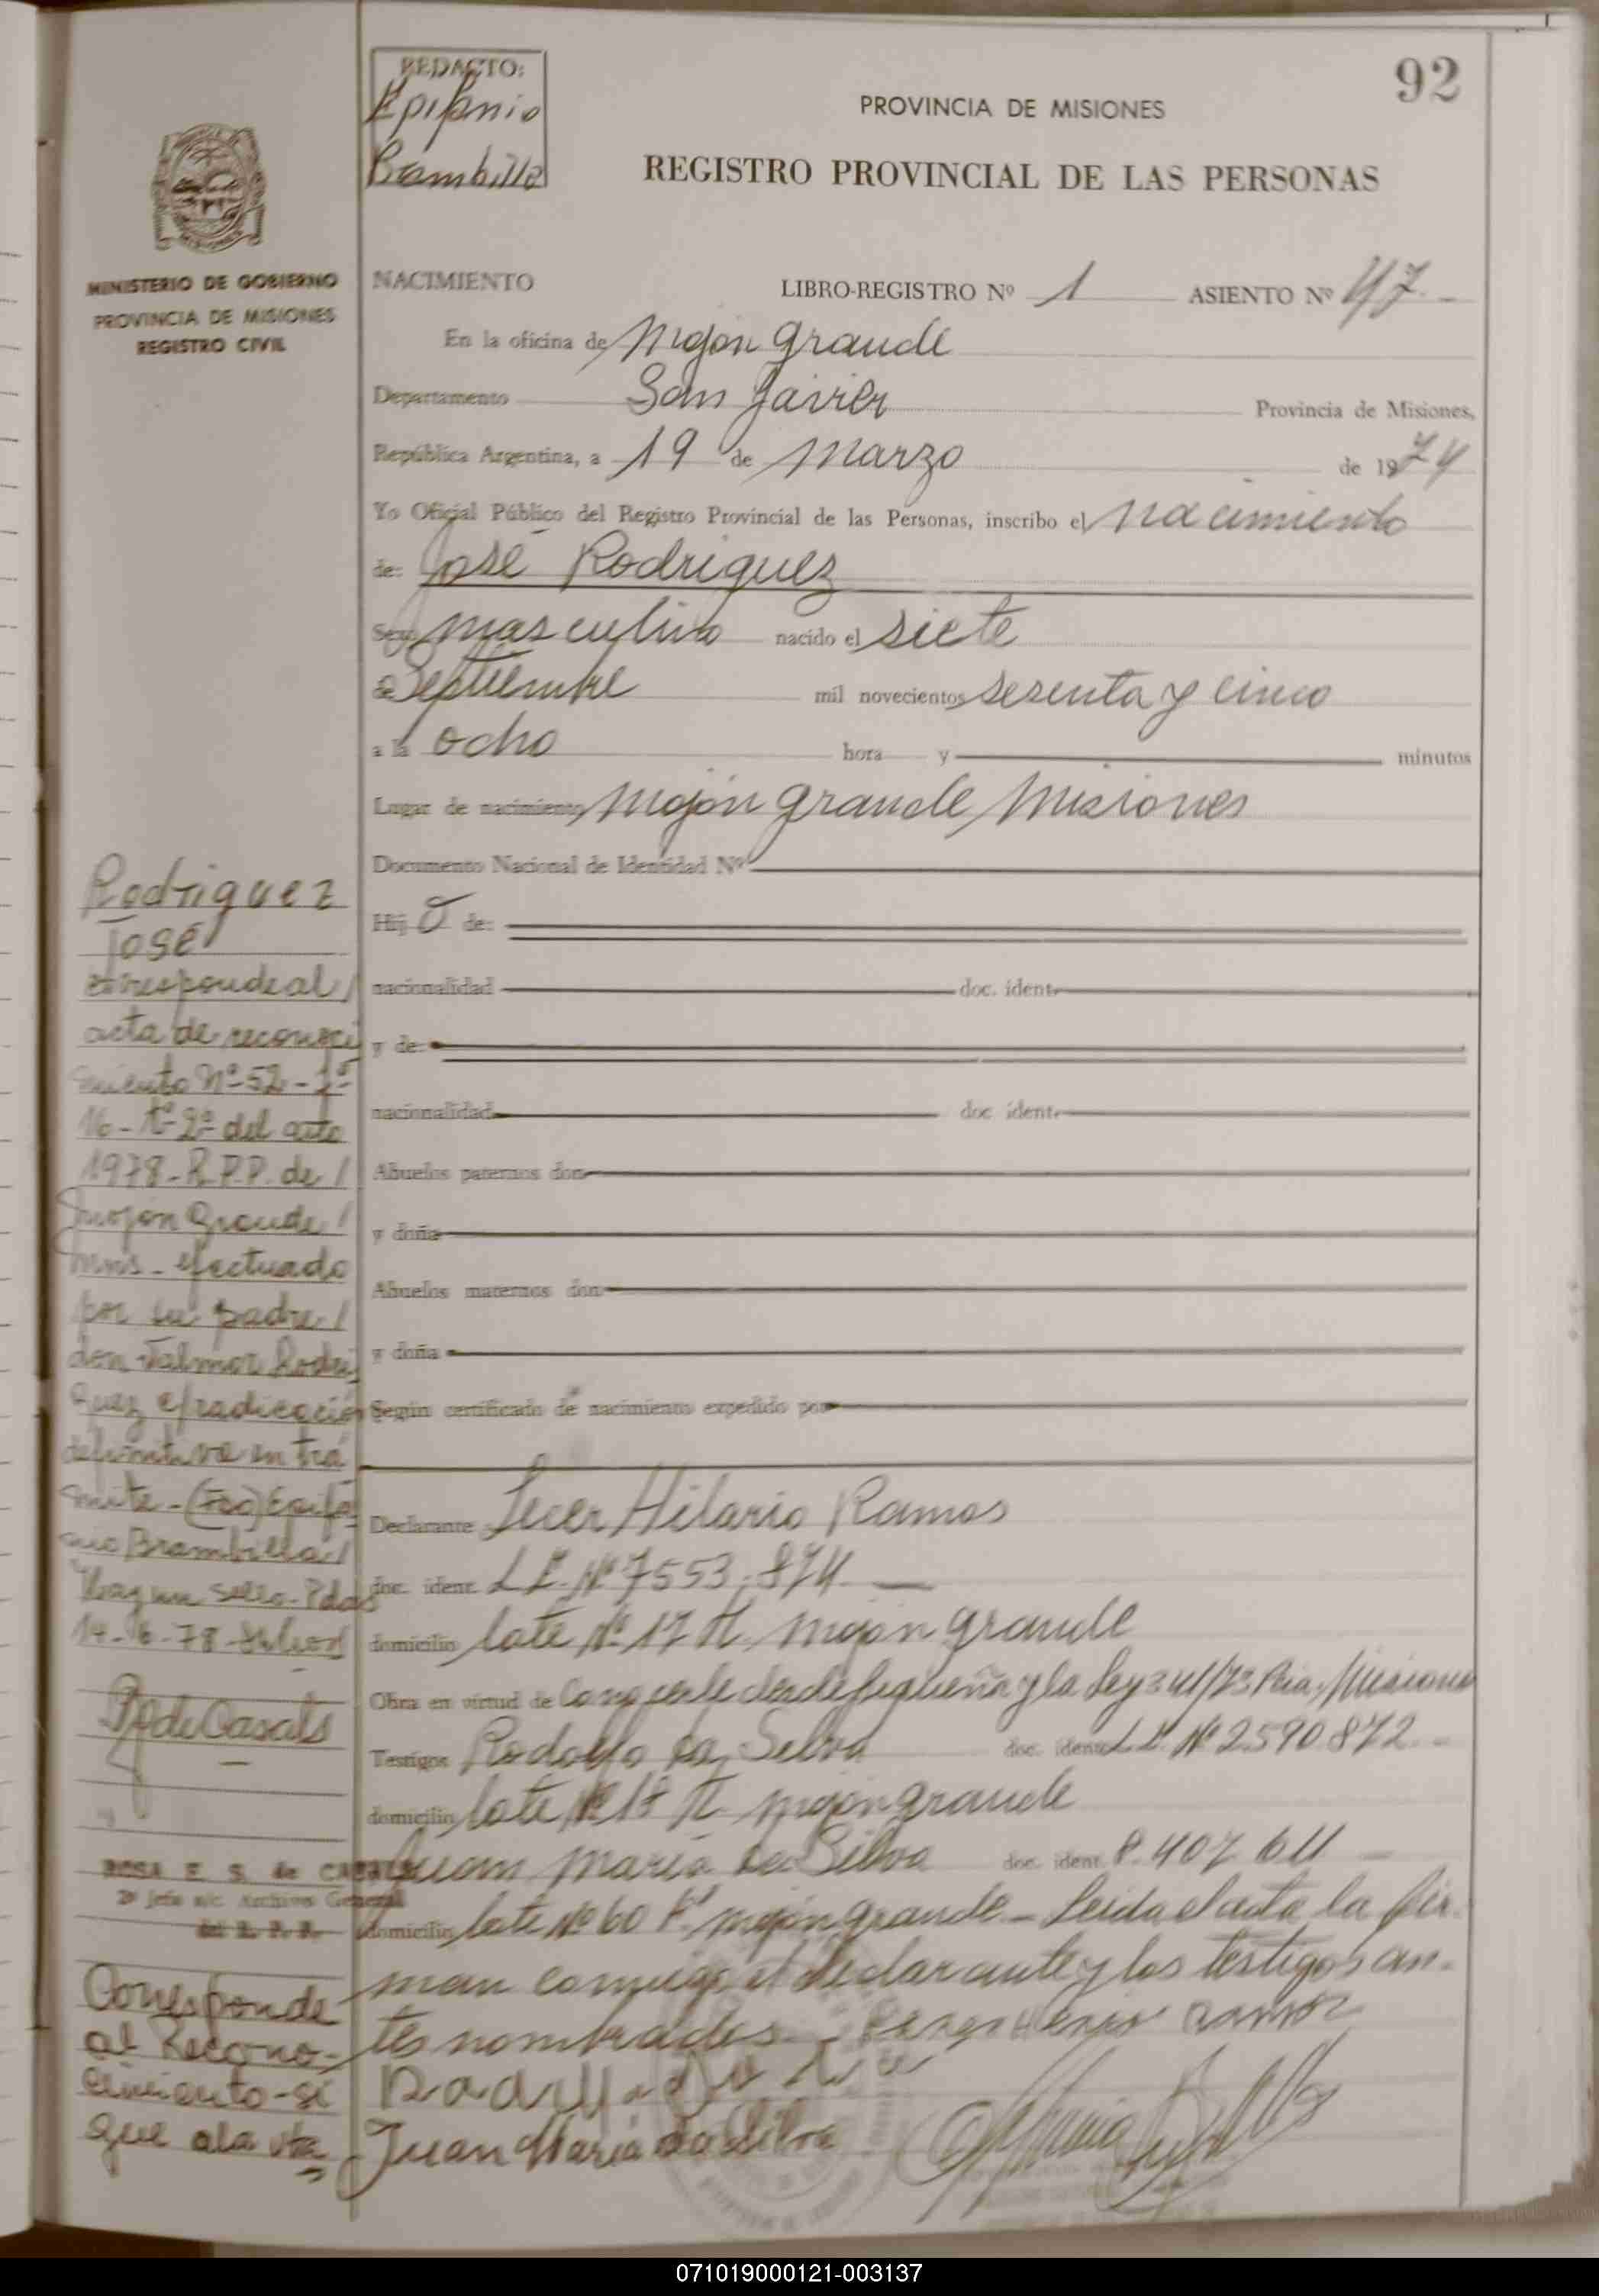 REDACTO:
Epifanio
Brambilla
92
PROVINCIA DE MISIONES
REGISTRO PROVINCIAL DE LAS PERSONAS
MINISTERIO DE GOBIERNO
PROVINCIA DE MISIONES
REGISTRO CIVIL
NACIMIENTO LIBRO-REGISTRO Nº 1 ASIENTO Nº 47.-
En la oficina de Mojon grande
Departamento San Javier Provincia de Misiones,
República Argentina, a 19 de Marzo de 1974
Yo Oficial Público del Registro Provincial de las Personas, inscribo el nacimiento
de: José Rodriguez
Sexo masculino nacido el siete
de Septiembre mil novecientos sesenta y cinco
a la ocho hora y minutos
Lugar de nacimiento Mojón grande Misiones
Documento Nacional de Identidad Nº
Hijo de:
nacionalidad doc. ident.
y de:
nacionalidad doc. ident.
Abuelos paternos don
y doña
Abuelos maternos don
y doña
Según certificado de nacimiento expedido por
Declarante Hilario Ramos
doc. ident. L.E. Nº 7553.874
domicilio lote Nº 17 mojón grande
Obra en virtud de desde pequeña y la Ley Misiones
Testigos Rodolfo da Silva doc. ident. L.E. Nº 2590872.-
domicilio lote Nº mojón grande
Juan María da Silva doc. ident. 8.407.611
domicilio lote Nº 60 mojón grande - Leida el acta la fir-
man conmigo el declarante y los testigos an-
tes nombrados. - Ramos
Juan María da Silva
Rodriguez
José
corresponde al /
acta de reconoci
miento Nº 52 -
16 - tº 2º del año
1978 - R.P.P. de /
Mojón Grande /
Mns - efectuado
por su padre /
don Talmor Rodri
guez radicación
definitiva en trá
mite - (Fdo) Epifa
nio Brambilla /
Hay un sello - Pdas
14-6-78
R de Casals
ROSA E. S. de CASALS
2º Jefe a/c. Archivo General
del R. P. P.
Corresponde
al Recono-
cimiento - si
gue a la vta
071019000121-003137